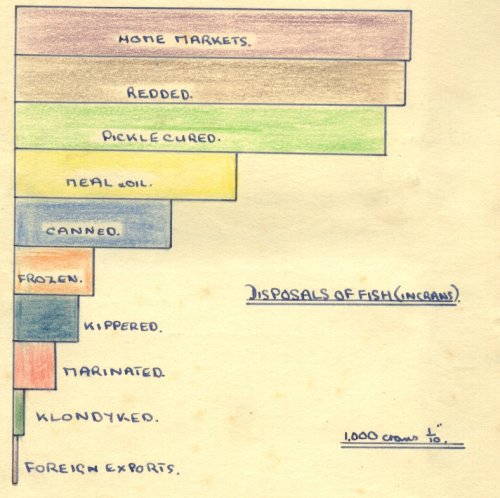 HOME MARKETS.
REDDED.
PICKLE CURED.
MEAL & OIL.
CANNED.
FROZEN.
DISPOSALS OF FISH (IN CRANS).
KIPPERED.
MARINATED.
KLONDYKED.
1,000 crans 1/10".
FOREIGN EXPORTS.